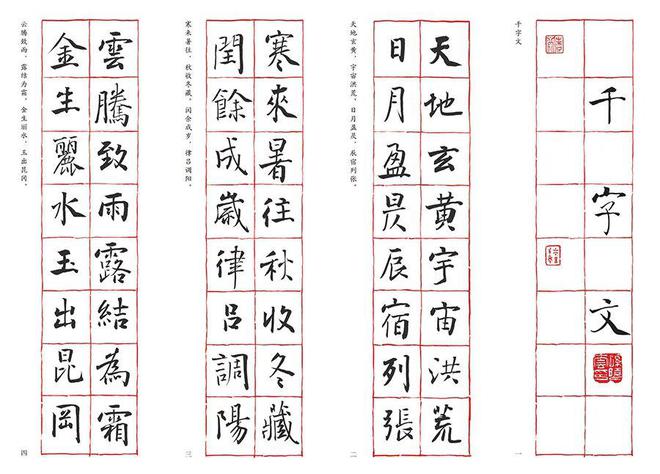 千字文
千字文
一
天地玄黄宇宙洪荒
日月盈昃辰宿列張
天地玄黄，宇宙洪荒。日月盈昃，辰宿列张。
二
寒來暑往秋收冬藏
閏餘成歲律呂調陽
寒来暑往，秋收冬藏。闰余成岁，律吕调阳。
三
雲騰致雨露結為霜
金生麗水玉出昆岡
云腾致雨，露结为霜。金生丽水，玉出昆冈。
四